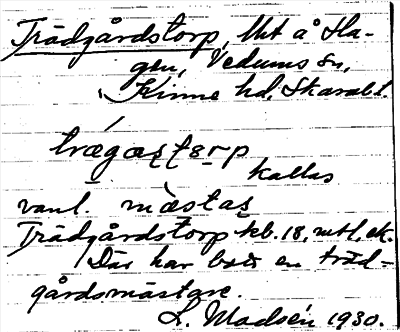 Trädgårdstorp, lht å Ha-
gen, Vedums sn,
Kinne hd. Skarabl.
kallas
vanl. mästas
Trädgårdstorp kb. 18, mtl, ek.
Där har bott en träd-
gårdsmästare.
L. Madsén 1930.